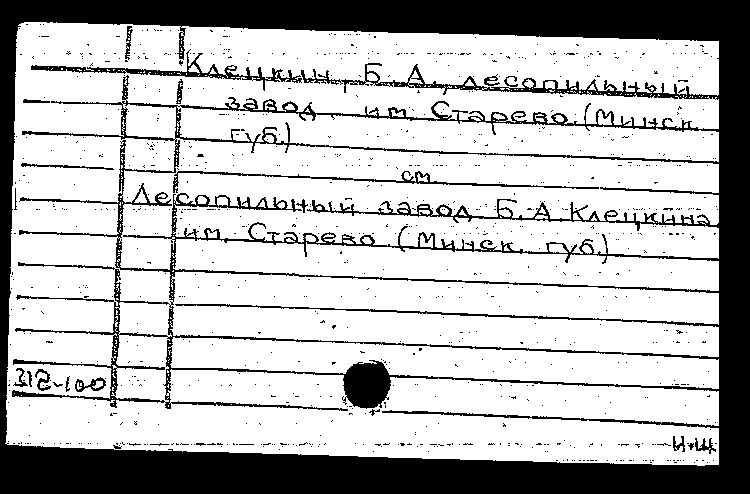 Клецкин, Б.А., лесопильный
завод им. Старево. (Минск.
губ.)
см
Лесопильный завод Б.А. Клецкина
им. Старево (Минск. губ.)
318-100